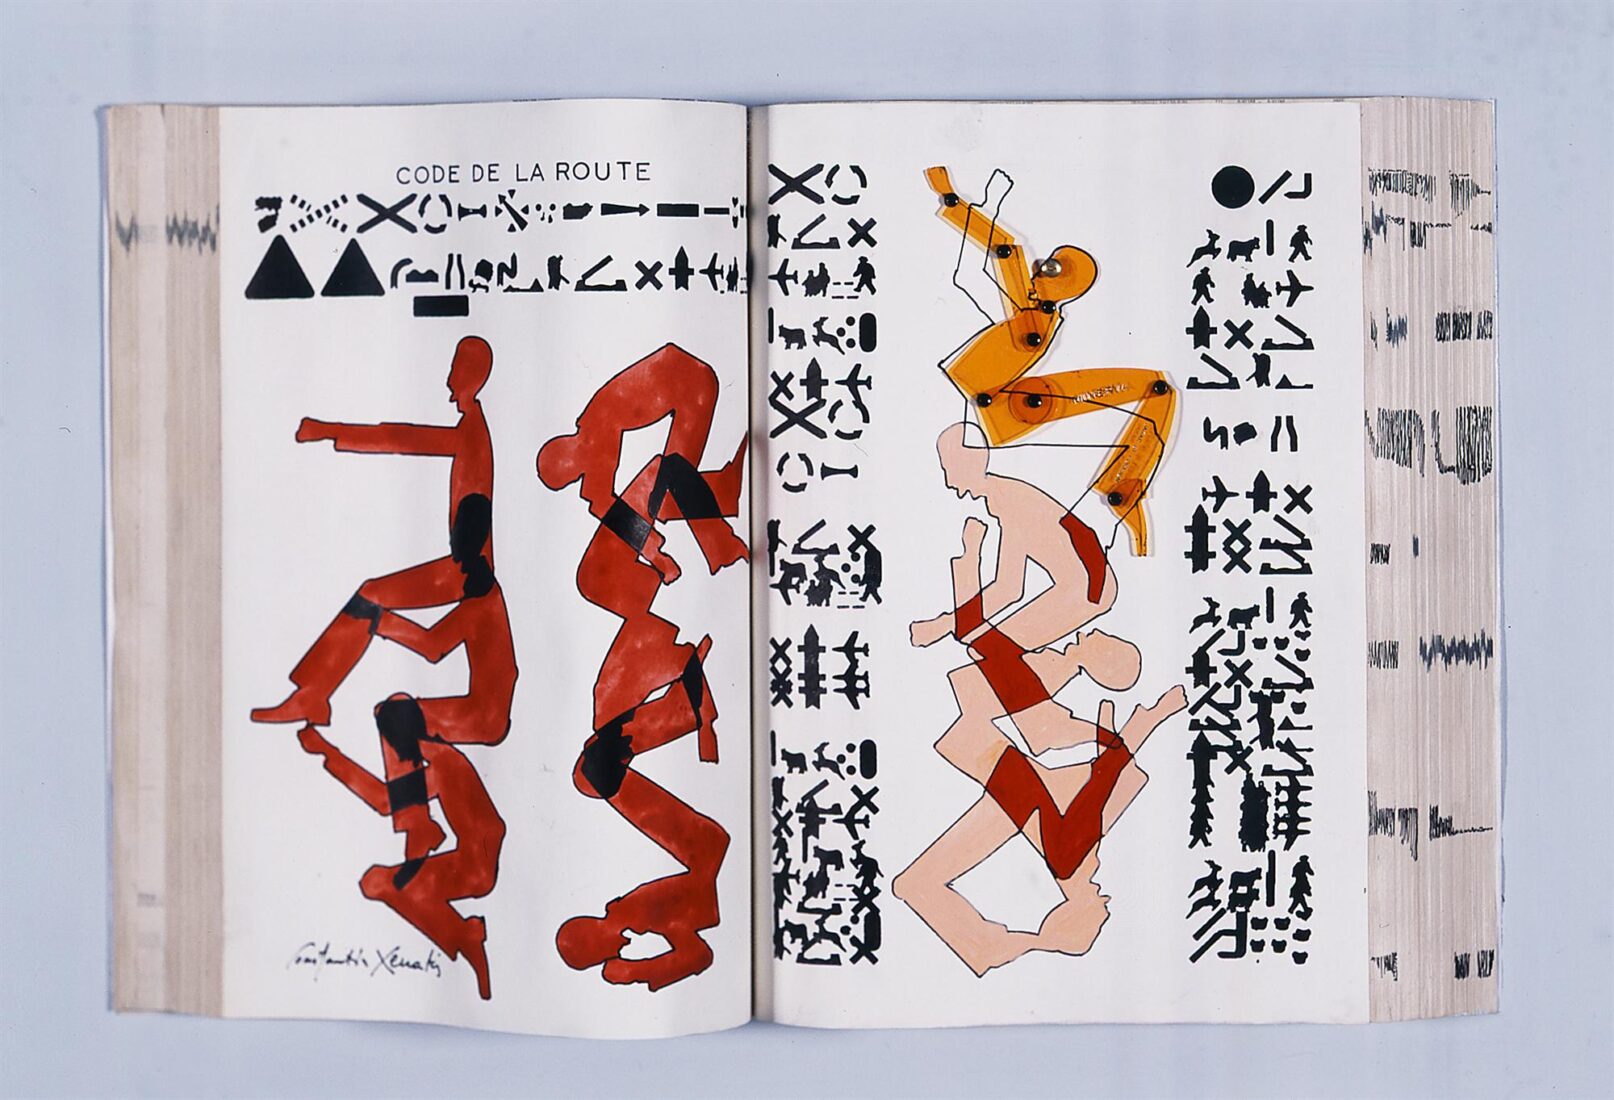 CODE DE LA ROUTE
Constantin Xenakis